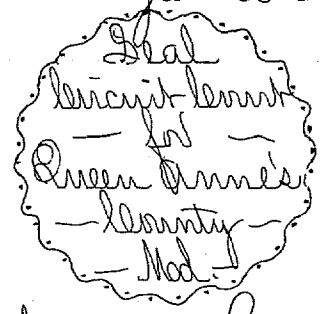 Seal
Circuit Court
— for —
Queen Anne's
— County —
— Md —